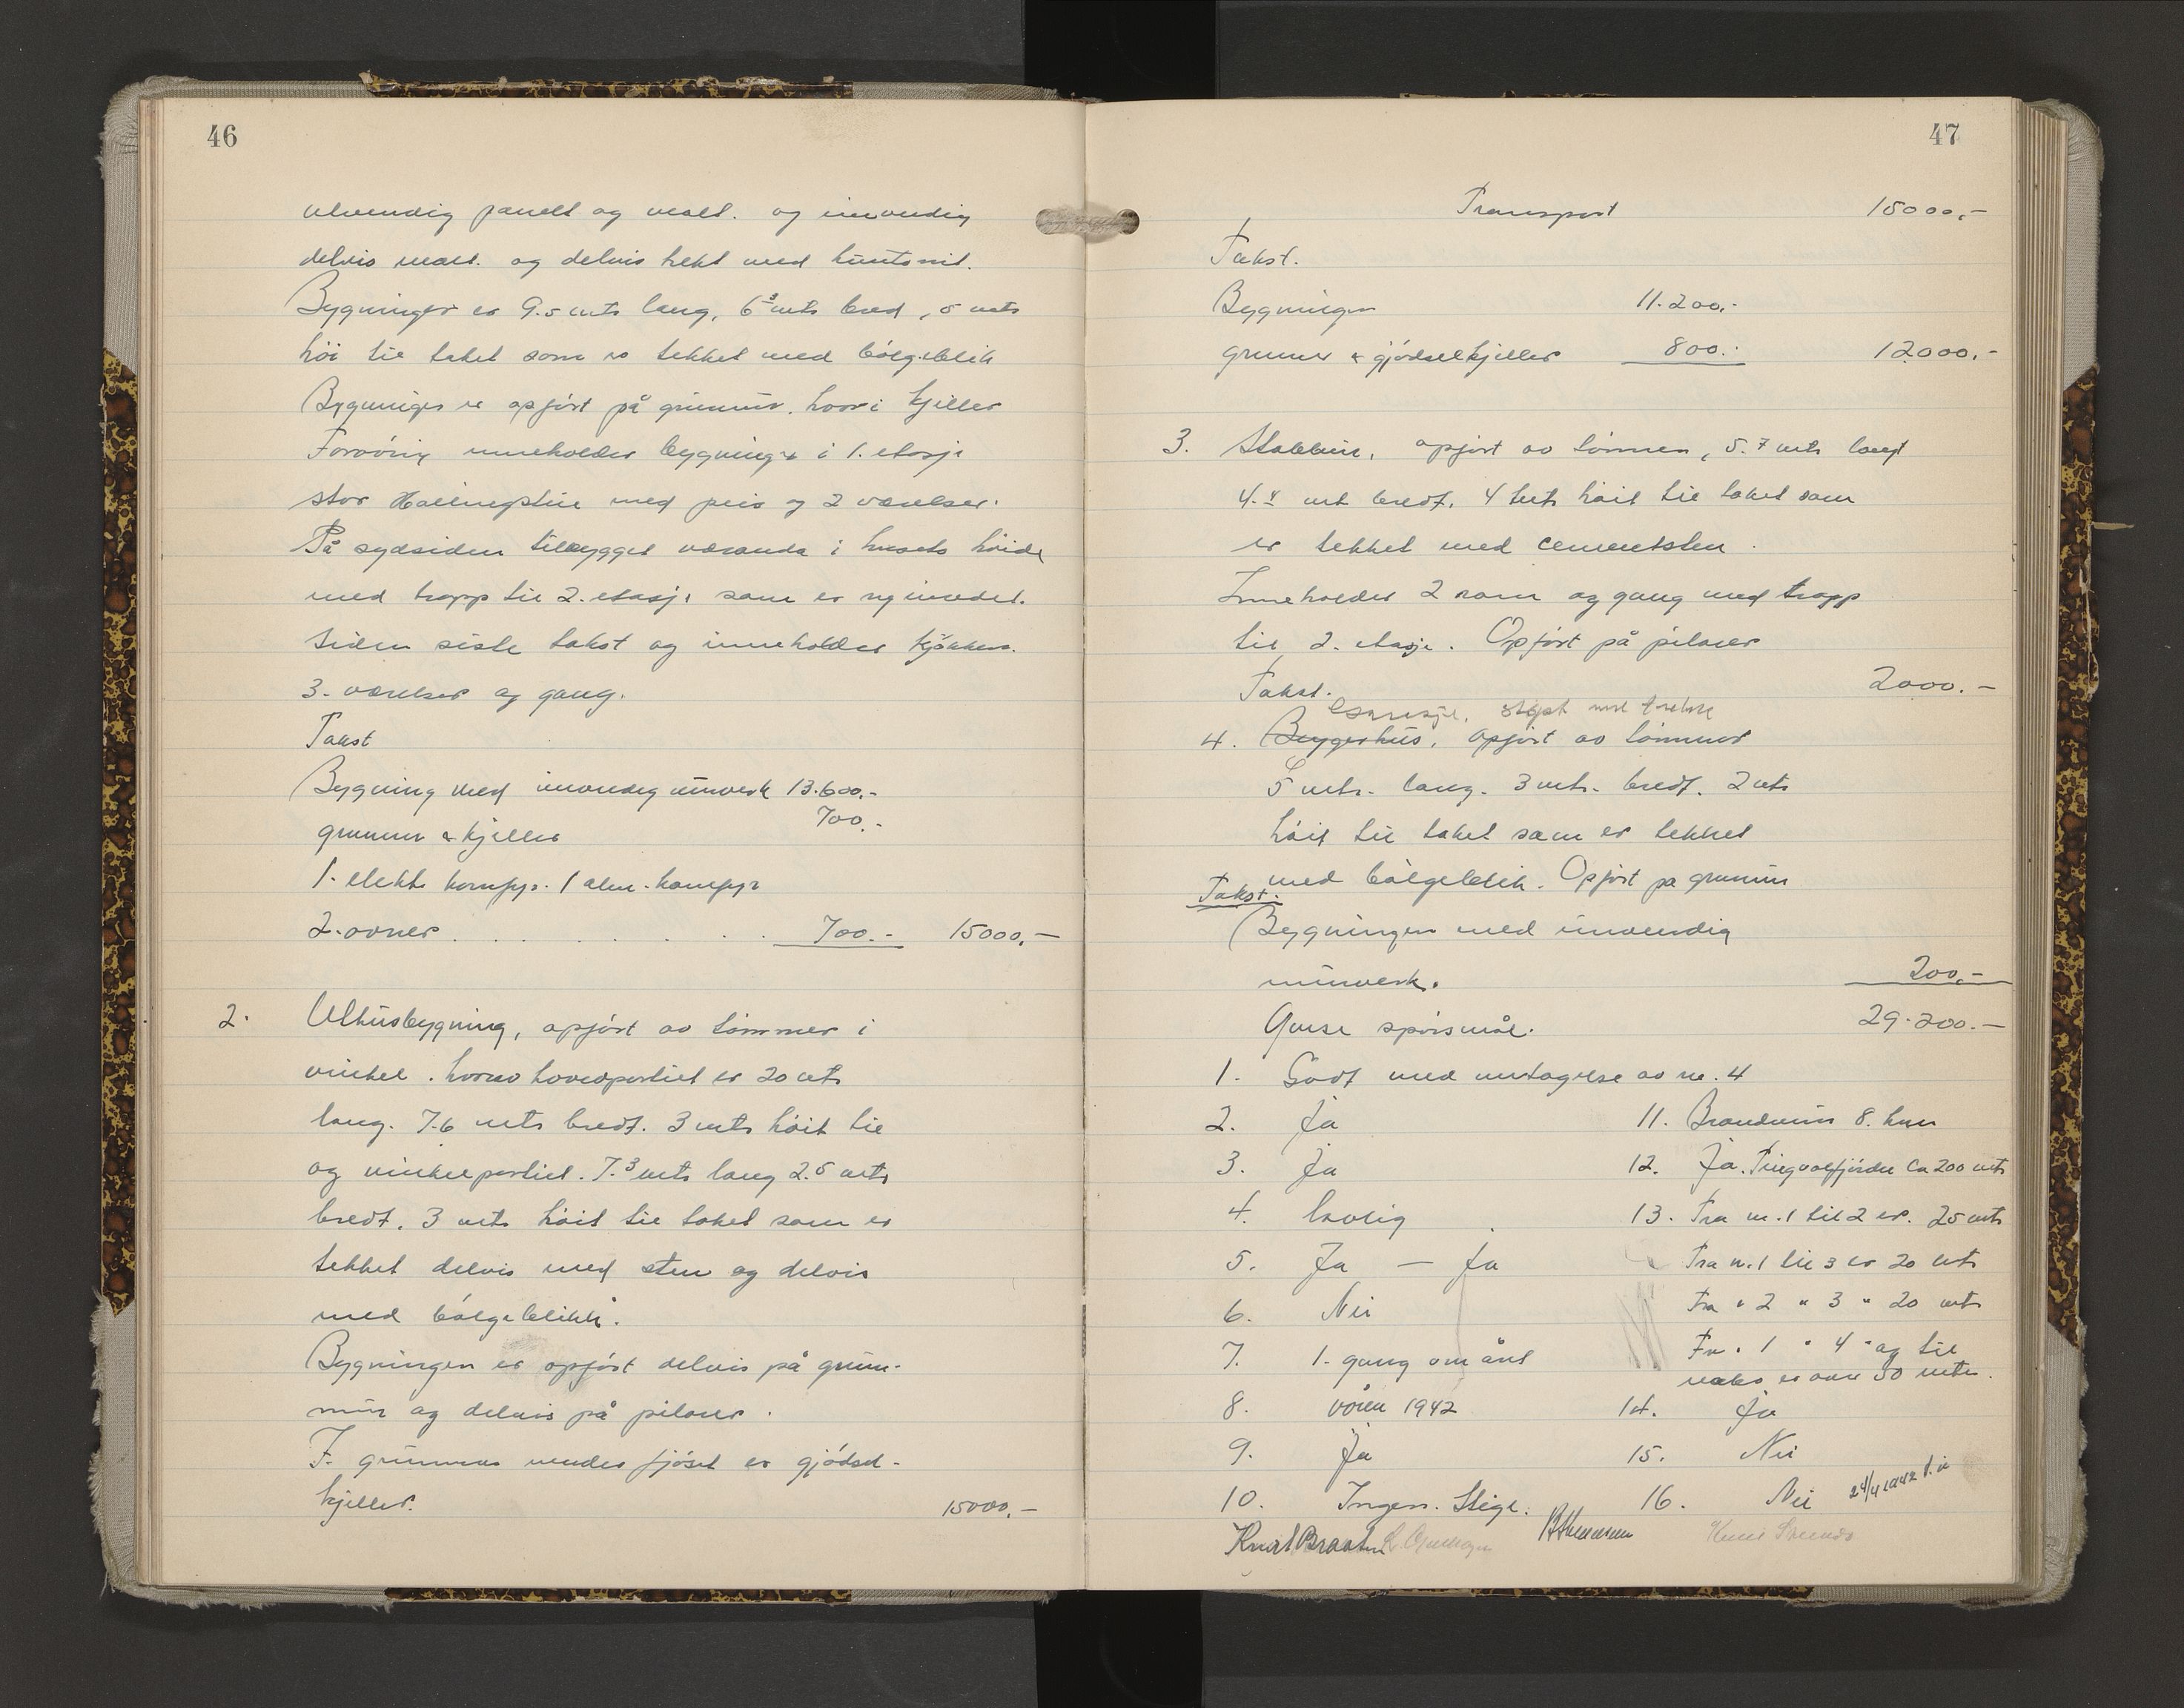 46
utvendig panelt og malt. og innvendig
delvis malt. og delvis trekt med huntonit.
Bygningen er 9.5 mtr lang, 6³ mtr bred, 5 mtr
høi til taket som er tekket med bølgeblik
Bygningen er opført på grunnmur. hvori kjeller
Forøvrig inneholder bygningen i 1. etasje
stor Hallingstue med peis og 2 værelser.
På sydsiden tilbygget veranda i husets høide
med trapp til 2. etasje som er nyinnredet.
siden siste takst og inneholder kjøkken.
3. værelser og gang.
Takst
Bygning med innvendig murverk 13.600,-
grunnmur & kjeller 700.-
1. elektr komfyr. 1 alm. komfyr
2. ovner . . . . . . . 700.- 15000,-
2. Uthusbygning, opført av tømmer i
vinkel. hvorav hovedpartiet er 20 mtr
lang. 7.6 mtr bredt. 3 mtr høit til
og vinkelpartiet. 7.³ mtr lang 2.5 mtr
bredt. 3 mtr høit til taket som er
tekket delvis med sten og delvis
med bølgeblikk.
Bygningen er opført delvis på grunn-
mur og delvis på pilarer.
I grunnmur under fjøset er gjødsel-
kjeller. 15000,-
47
Transport 15000,-
Takst.
Bygningen 11.200,-
grunnmur & gjødselkjeller 800.- 12000,-
3. Stabbur, opført av tømmer, 5.7 mtr langt
4.4 mtr bredt. 4 mtr høit til taket som
er tekket med cementsten.
Inneholder 2 rom og gang med trapp
til 2. etasje. Opført på pilarer
Takst. 2000.-
Garasje, støpt med
4. Bryggerhus, opført av tømmer
5 mtr. lang. 3 mtr. bredt. 2 mtr
høit til taket som er tekket
med bølgeblik. Opført på grunnmur
Takst.
Bygningen med innvendig
murverk. 200,-
Gense spørsmål. 29.200.-
1. Godt med undtagelse av nr. 4
2. Ja
3. Ja
4. lovlig
5. Ja — Ja
6. Nei
7. 1. gang om året
8. våren 1942
9. Ja
10. Ingen. Stige.
11. Brandmur 8. km
12. Ja. Tingvollfjorden ca 200 mtr
13. Fra nr. 1 til 2 er. 25 mtr
Fra nr. 1 til 3 er 20 mtr
Fra " 2 " 3 " 20 mtr
Fra " 1 " 4 " og til
nabo er over 50 mtr.
14. Ja
15. Nei
16. Nei 24/4 1942
Knut Braaten